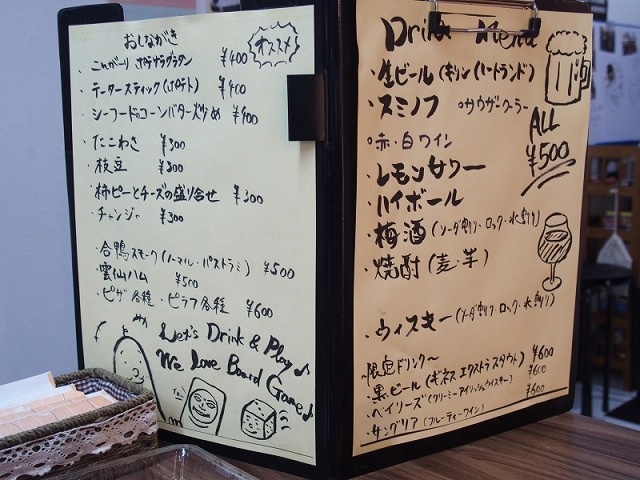 おしながき
オススメ
・こんがり ポテサラグラタン ¥400
・テータースティック(ポテト) ¥400
・シーフードのコーンバター炒め ¥400
・たこわさ ¥300
・枝豆 ¥300
・柿ピーとチーズの盛り合せ ¥300
・チャンジャ ¥300
・合鴨スモーク(ノーマル・パストラミ) ¥500
・雲仙ハム ¥500
・ピザ各種・ピラフ各種 ¥600
Let's Drink & Play♪
We Love Board Game♪
Drink Menu
・生ビール(キリンハートランド)
・スミノフ ○サウザクーラー
○赤・白ワイン
・レモンサワー
・ハイボール
・梅酒(ソーダ割り・ロック・水割り)
・焼酎(麦・芋)
・ウィスキー(ソーダ割り・ロック・水割り)
ALL
¥500
~限定ドリンク~
・黒ビール(ギネスエクストラスタウト) ¥600
・ベイリーズ(クリーミーアイリッシュウイスキー) ¥600
・サングリア(フルーティーワイン) ¥600